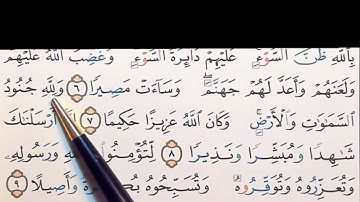 بِٱللَّهِ ظَنَّ ٱلسَّوْءِ ۚ عَلَيْهِمْ دَآئِرَةُ ٱلسَّوْءِ ۖ وَغَضِبَ ٱللَّهُ عَلَيْهِمْ
وَلَعَنَهُمْ وَأَعَدَّ لَهُمْ جَهَنَّمَ ۖ وَسَآءَتْ مَصِيرًا ٦ وَلِلَّهِ جُنُودُ
ٱلسَّمَٰوَٰتِ وَٱلْأَرْضِ ۚ وَكَانَ ٱللَّهُ عَزِيزًا حَكِيمًا ٧ أَرْسَلْنَٰكَ
شَٰهِدًا وَمُبَشِّرًا وَنَذِيرًا ٨ لِّتُؤْمِنُوا۟ بِٱللَّهِ وَرَسُولِهِۦ
وَتُعَزِّرُوهُ وَتُوَقِّرُوهُ ۚ وَتُسَبِّحُوهُ وَأَصِيلًا ٩